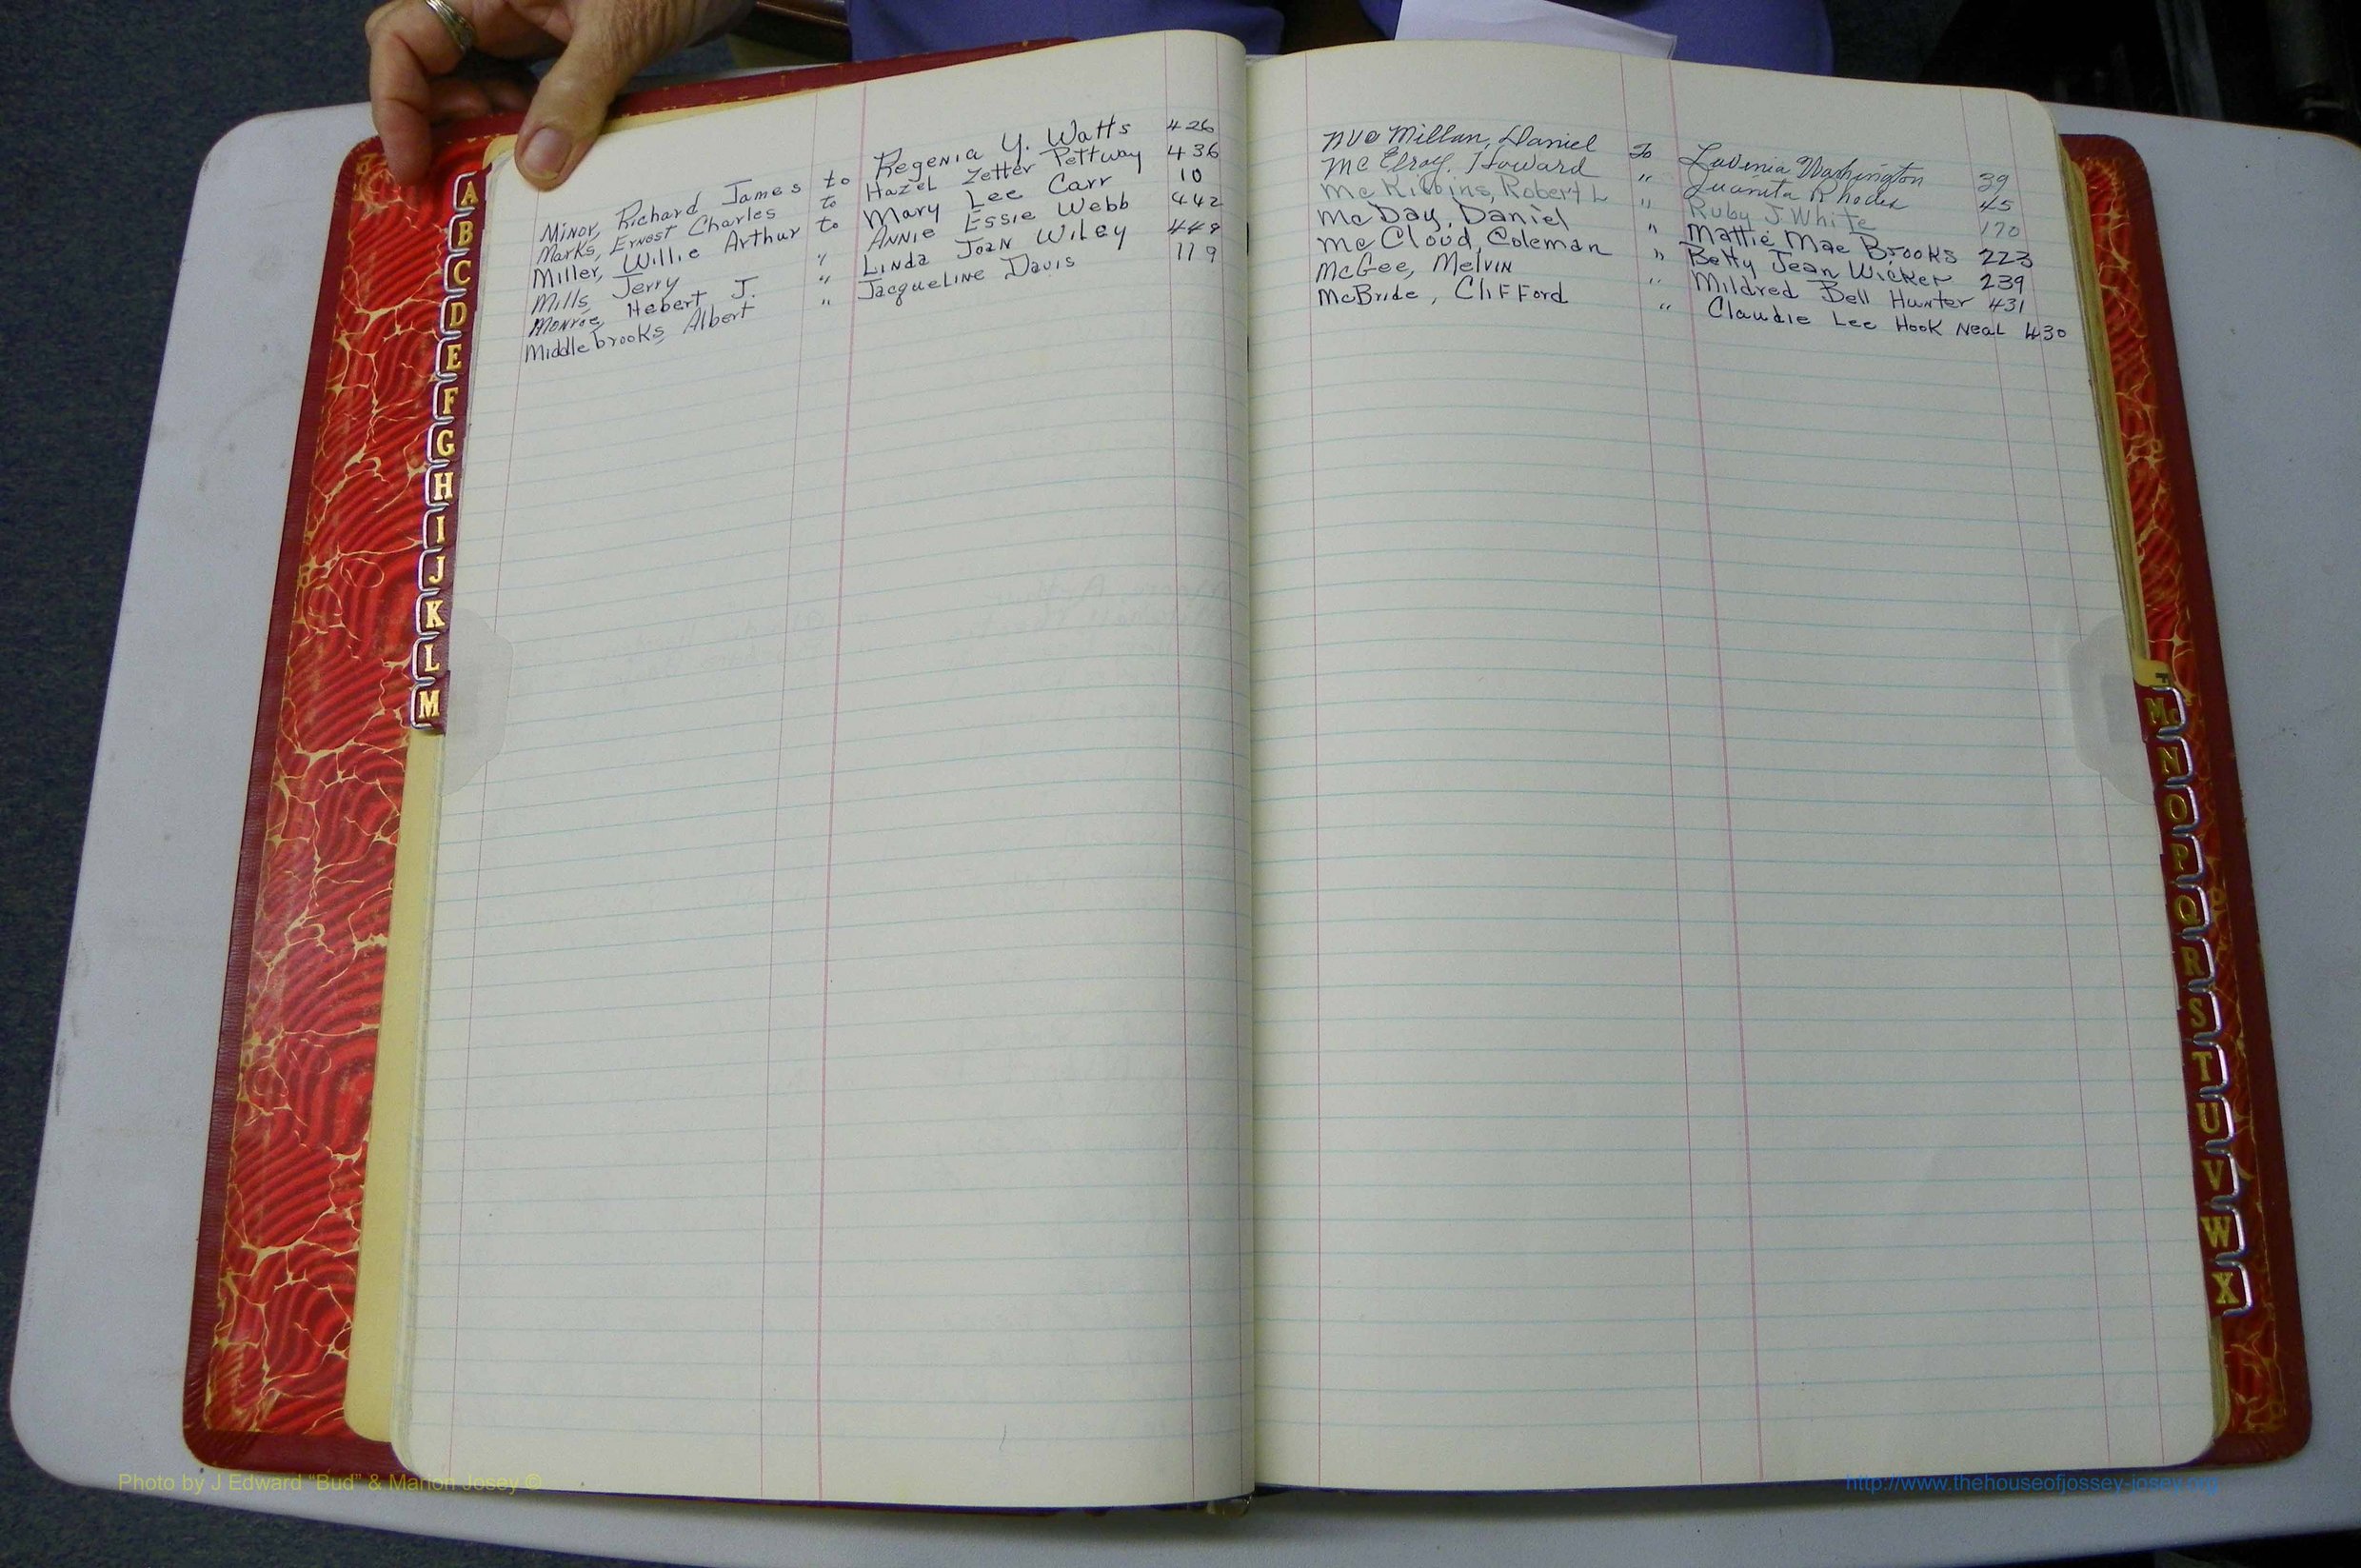 Minor, Richard James to Regenia Y. Watts 426
Marks, Ernest Charles to Hazel Zetter Pettway 436
Miller, Willie Arthur to Mary Lee Carr 10
Mills, Jerry " Annie Essie Webb 442
Monroe, Hebert J. " Linda Joan Wiley 449
Middlebrooks Albert " Jacqueline Davis 119
Millan, Daniel To Luvenia Washington 39
Mc Elroy, Howard " Juanita Rhodes 45
McKibbins, Robert L " Ruby J. White 170
McDay, Daniel " Mattie Mae Brooks 223
McCloud, Coleman " Betty Jean Wicker 239
McGee, Melvin " Mildred Bell Hunter 431
McBride, Clifford " Claudie Lee Hook Neal 430
A
B
C
D
E
F
G
H
I
J
K
L
M
Mc
N
O
P
Q
R
S
T
U
V
W
X
Photo by J Edward "Bud" & Marion Josey ©
http://www.thehouseofjossey-josey.org